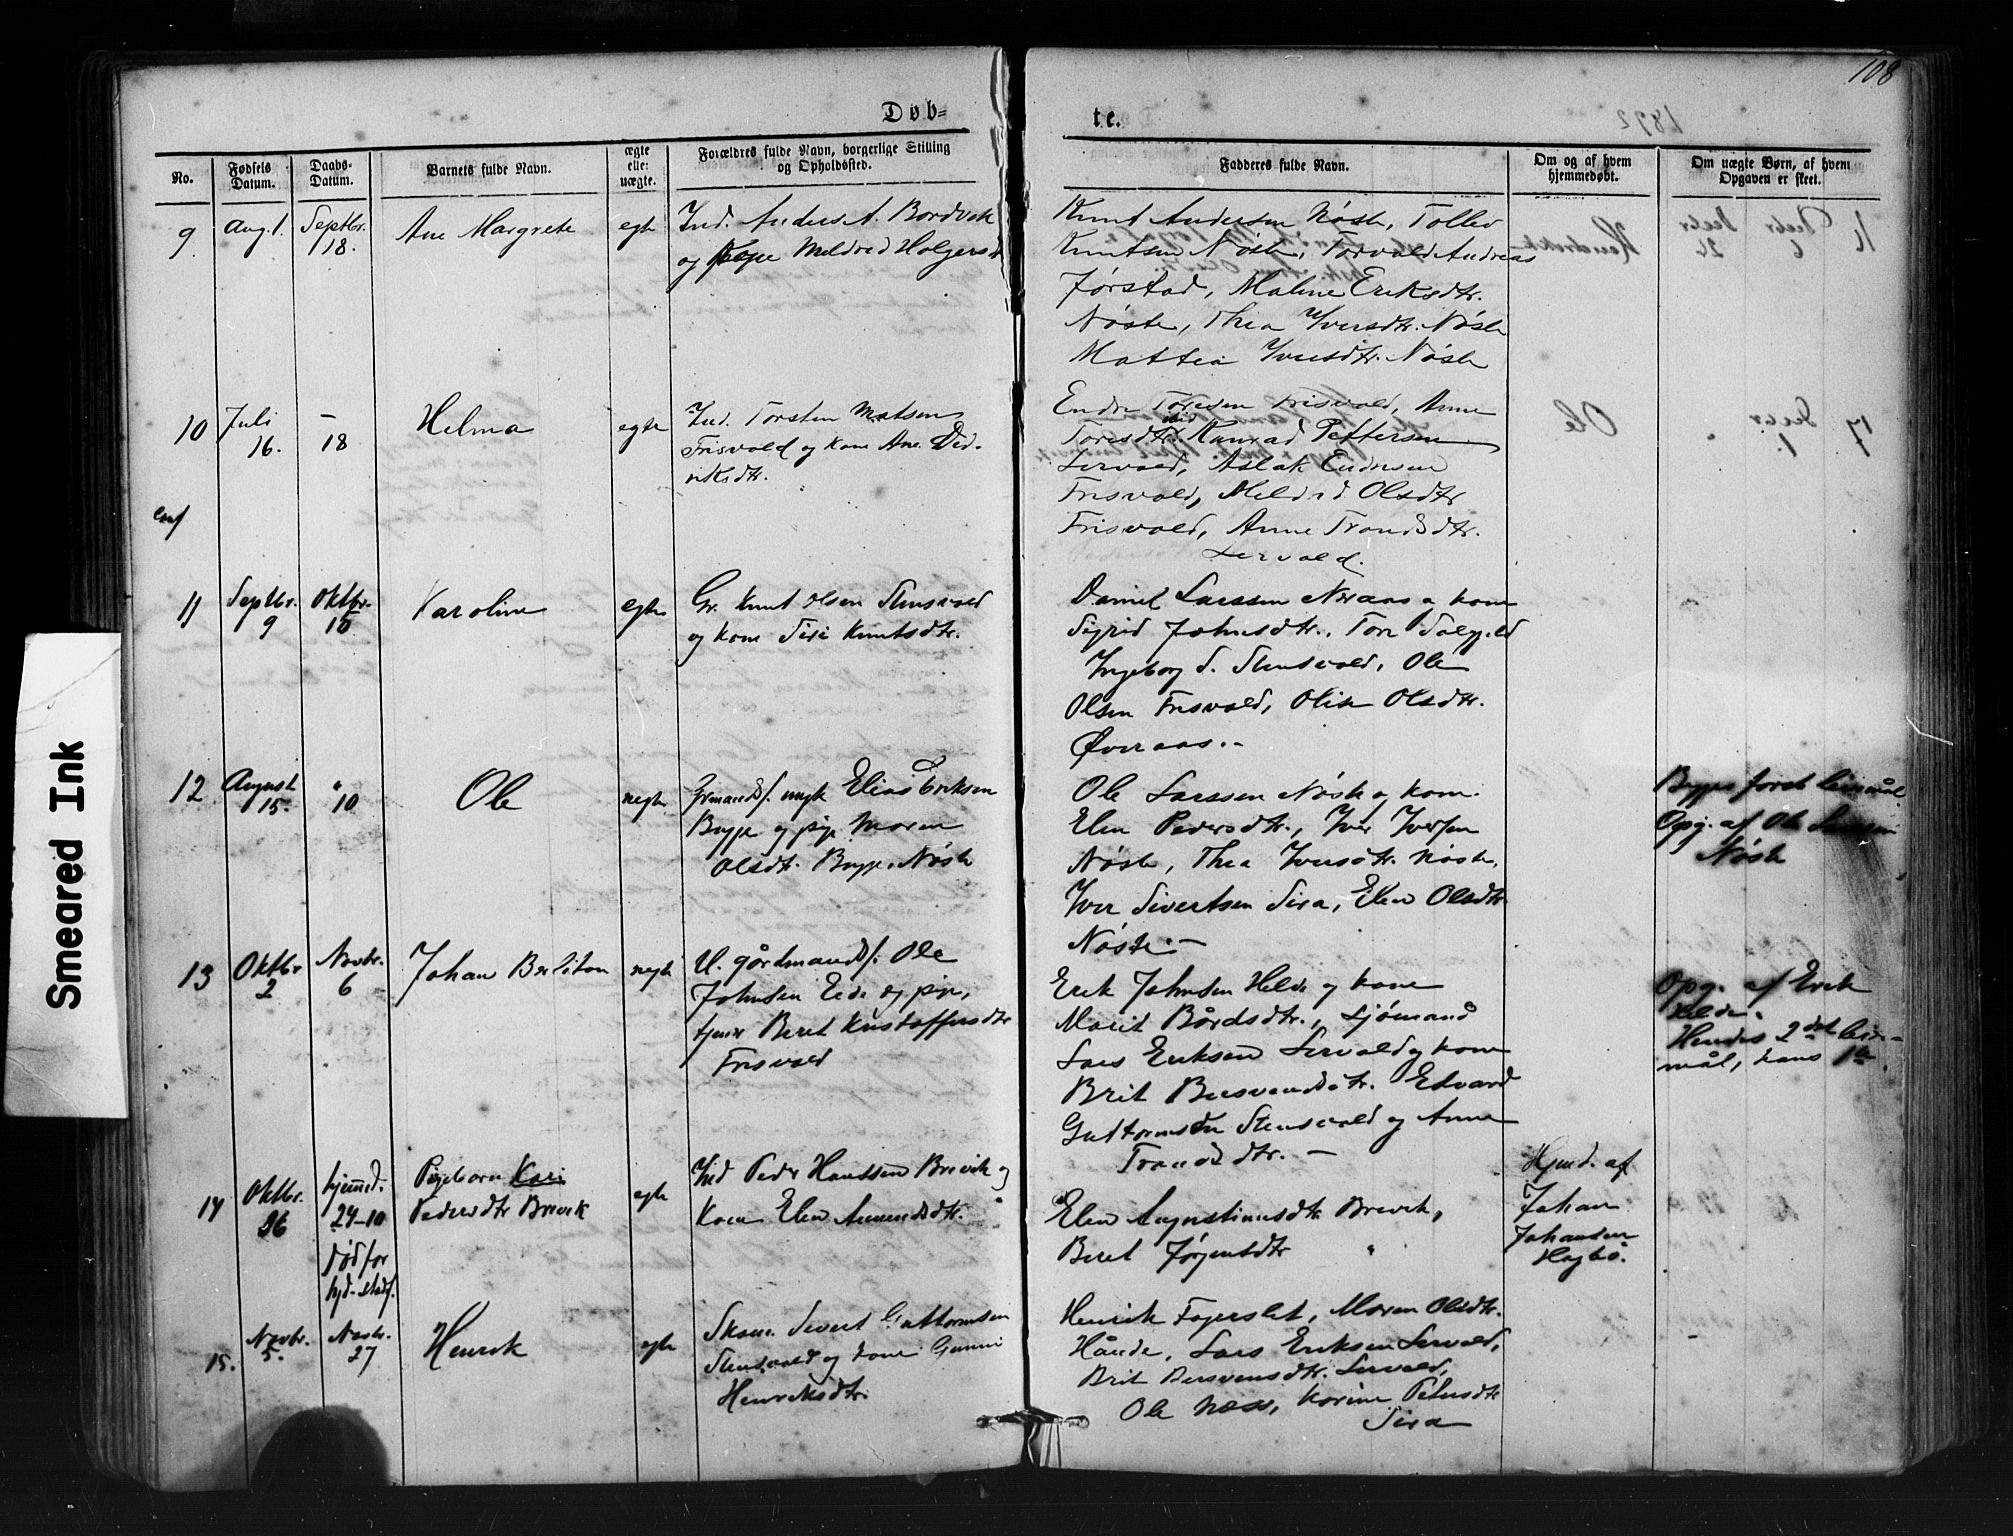 108
Døb-
te.
No.
Fødsels Datum.
Daabs-Datum.
Barnets fulde Navn.
ægte elle: uægte.
Forældres fulde Navn, borgerlige Stilling og Opholdsted.
Fadderes fulde Navn.
Om og af hvem hjemmedøbt.
Om uægte Børn, af hvem Opgaven er skeet.
9
Aug. 1.
Septbr. 18.
Ane Margrete
egte
Ind. Anders A. Bordvik
og Meldrid Holgersd
Knut Andersen Nøste, Tollev
Knutsen Nøste, Torvald Andreas
Jørstad, Maline Eriksdtr.
Nøste, Thea Iversdtr. Nøste
Mattea Iversdtr. Nøste
10
Juli 16.
– 18
Helma
egte
Ind. Torsten Matsen
Frisvold og kone Ane Did-
riksdtr.
Endre Toresen Frisvold, Anne
Toresdtr. Konrad Pettersen
Lervold, Aslak Endresen
Frisvold, Meldrid Olsdtr
Frisvold, Anne Trondsdtr.
Lervold.
11
Septbr. 9
Oktbr. 10
Karoline
egte
Gr. Knut Olsen Stensvold
og kone Siri Knutsdtr.
Daniel Larssen Noraas og kone
Sigrid Johnsdtr. Tore
Ingeborg S. Stensvold, Ole
Olsen Frisvold, Olise Olsdtr.
Øveraas.-
12
August 15.
" 10
Ole
uegte
Grmands. ungk Elias Eriksen
Bugge og pige Maren
Olsdtr. Bugge, Nøste
Ole Larssen Nøste og kone
Elen Pedersdtr., Iver Iversen
Nøste, Thea Iversdtr. Nøste,
Iver Sivertsen Sira, Elen Olsdtr.
Nøste.-
Begges første leiermål.
Opg. af Ole Larssen
Nøste
13
Oktbr 2
Novbr. 6
Johan
uegte
U. gårdmands. Ole
Johnsen Eide og pige,
tjener Beret Kristoffersdtr
Frisvold
Erik Johnsen Helde og kone
Marit Bårdsdtr., Sjømand
Lars Eriksen Lervold og kone
Brit Bersvendsdtr. Edvard
Guttormsen Stensvold og Anne
Trondsdtr. –
Opg. af Erik
Helde.
Hendes 2det leier-
mål, hans 1te.
14
Oktbr. 26
hjemd. 24-10
Død før
Pigebarn Kari
Pedersdtr Brevik
egte
Ind Peder Hanssen Brevik og
Kone Elen Amundsdtr. "
Elen Augustinusdtr Brevik,
Beret Jørgensdtr "
Hjmd. af
Johan
Johansen
Hagbø.
15.
Novbr. 5.
Novbr. 27
Henrik
egte
Skom. Sivert Guttormsen
Stensvold og kone Gunni
Henriksdtr.
Henrik Fagerslet, Maren Olsdtr.
Hånde, Lars Eriksen Lervold,
Brit Bersvensdtr. Lervold,
Ole Næss, Karine Petersdtr
Sira
Smeared Ink